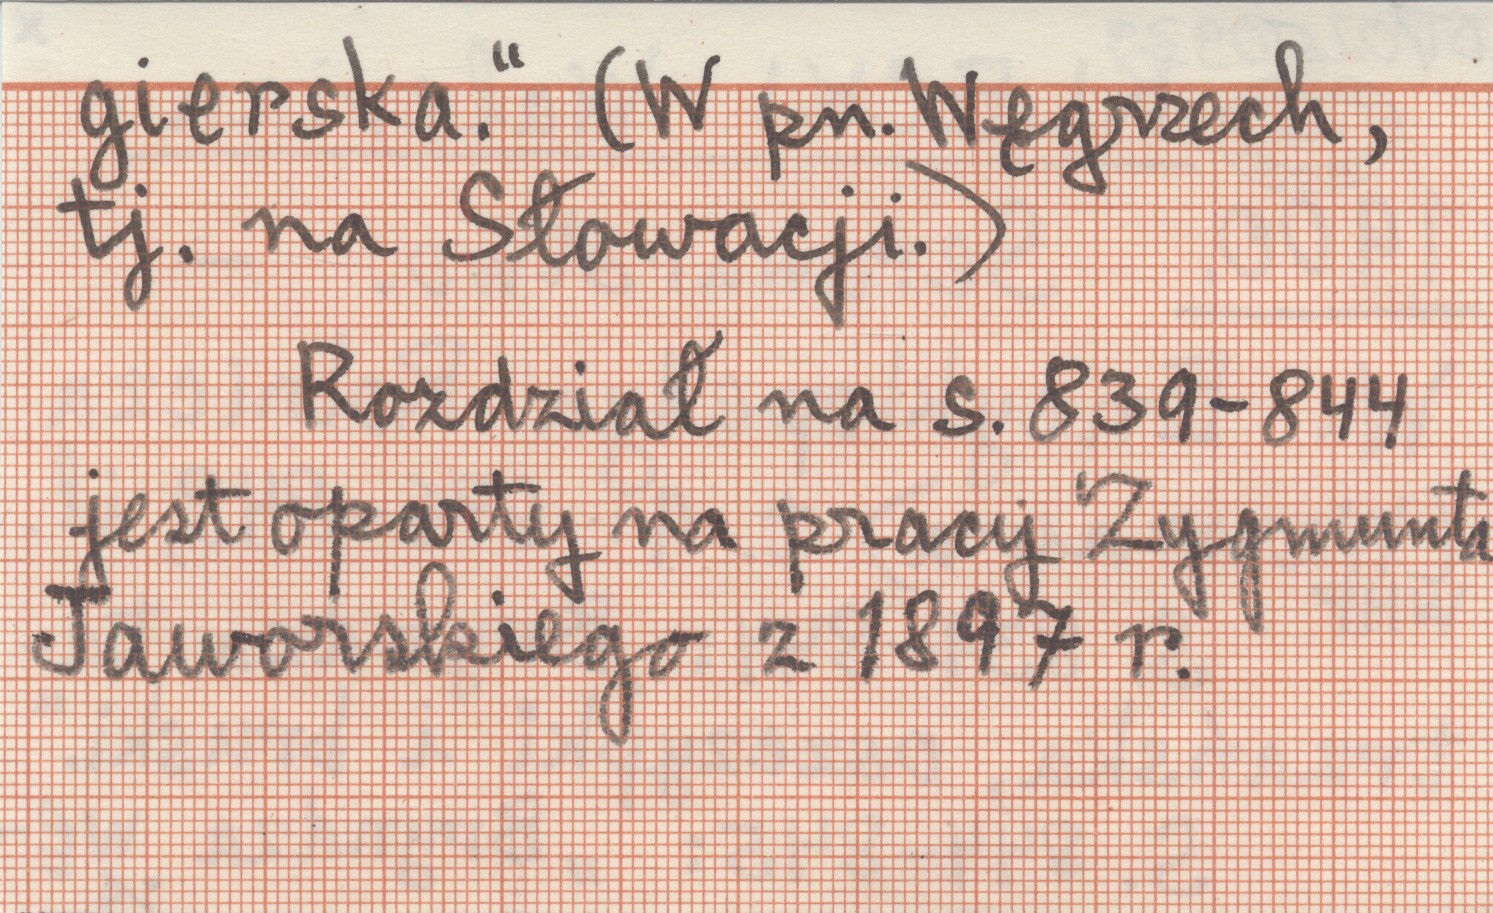 gierska." (W pn. Węgrzech,
tj. na Słowacji.)
Rozdział na s. 839-844
jest oparty na pracy Zygmunta
Jaworskiego z 1897 r.